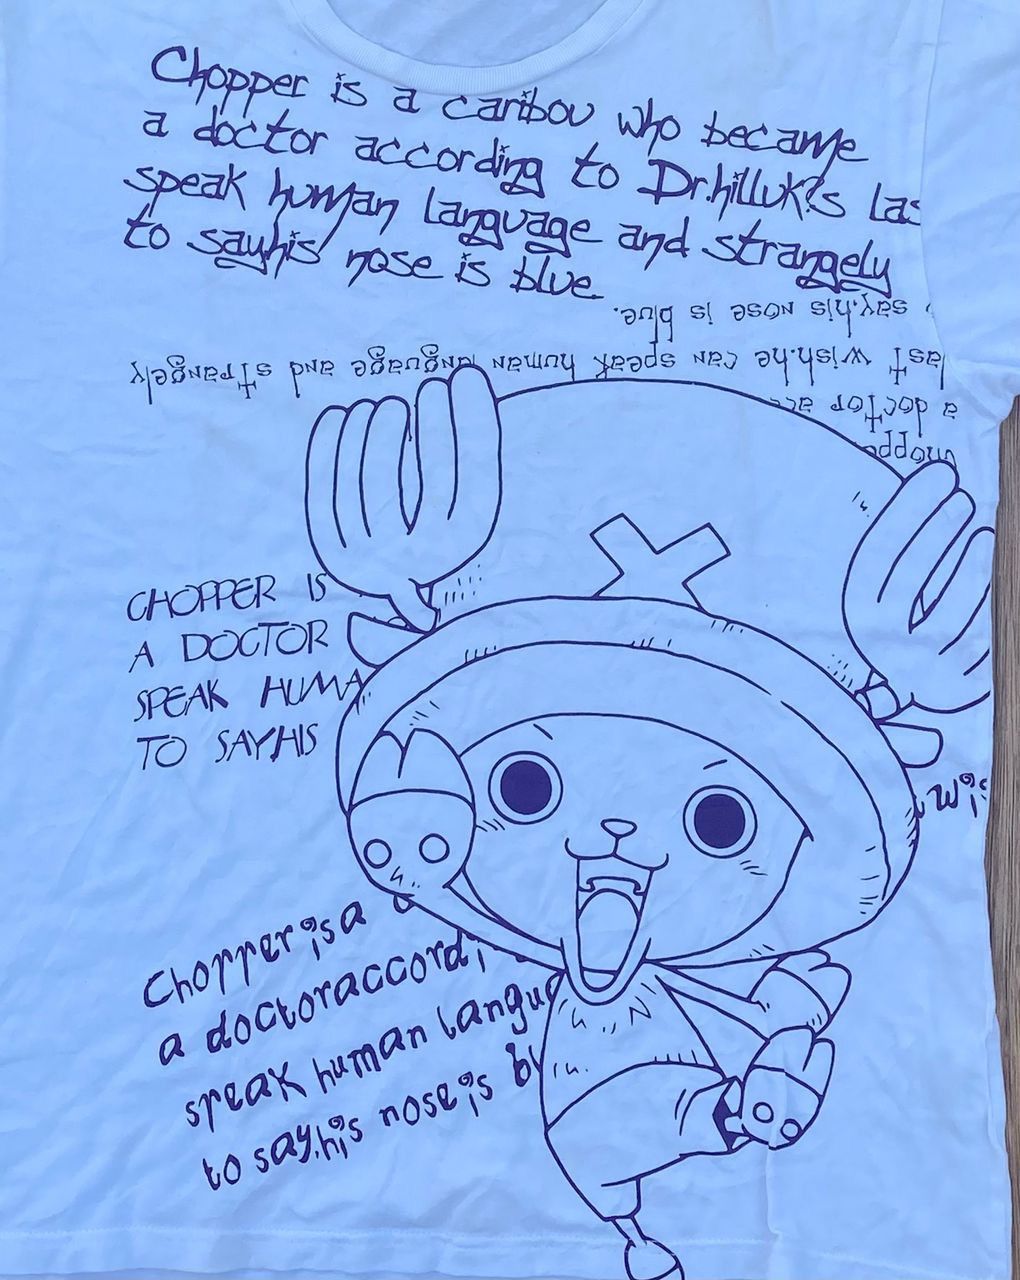 Chopper is a caribou who became
a doctor according to Dr.hilluk's las
speak human language and strangely
to say.his nose is blue.
say.his nose is blue.
last wish.he can speak human language and strangely
a doctor acc
chopper
CHOPPER IS
A DOCTOR
SPEAK HUMA
TO SAY.HIS
wis
Chopper is a c
a doctor accordi
speak human langua
to say.his nose is bl